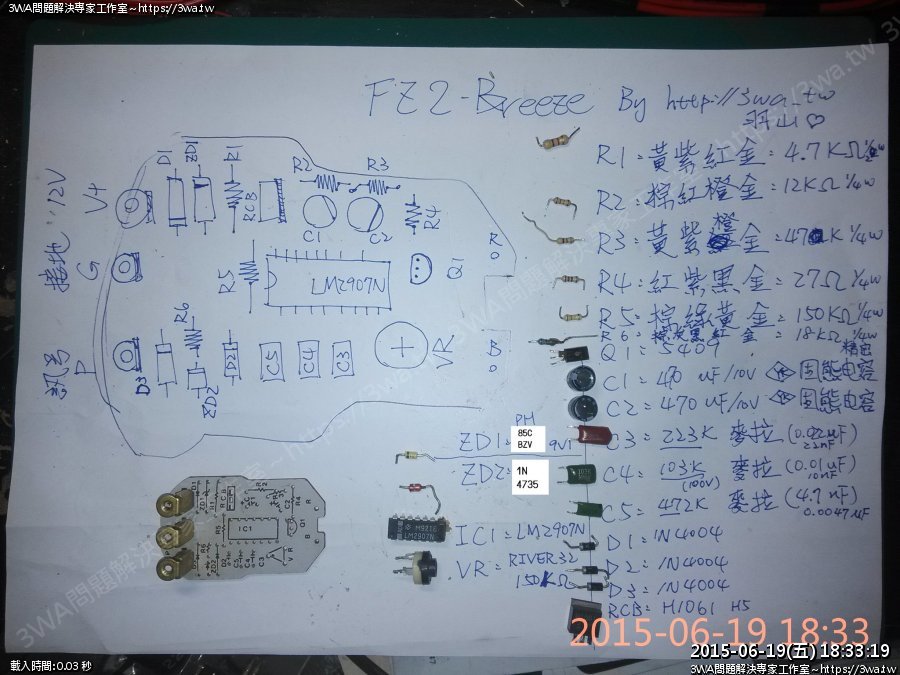 3WA問題解決專家工作室~https://3wa.tw
FZ2-Breeze By http://3wa.tw
羽山♡
R1:黃紫紅金:4.7KΩ 1/4w
R2:棕紅橙金:12KΩ 1/4w
R3:黃紫橙金:47K 1/4w
R4:紅紫黑金:27Ω 1/4w
R5:棕綠黃金:150KΩ 1/4w
R6:棕灰黑紅金:18KΩ 1/4w
精密
Q1:
C1:470uF/10V 固態电容
C2:470uF/10V 固態电容
C3:223K 麥拉(0.022uF)
22nF
C4:103K 麥拉(0.01uF)
(100V) 10nF
C5:472K 麥拉(4.7nF)
0.0047uF
D1:1N4004
D2:1N4004
D3:1N4004
RCB:H1061 H5
12V
V+
接地
G
訊号
P
D1
ZD1
R1
RCB
R2
R3
C1
C2
R4
R5
LM2907N
Q1
R
R6
D3
ZD2
D2
C5
C4
C3
VR
B
PH
ZD1=
85C
BZV
9V1
ZD2=
1N
4735
IC1=LM2907N
VR=RIVER32
150KΩ
IC1
LM2907N
2015-06-19 18:33
2015-06-19(五) 18:33:19
載入時間:0.03 秒
3WA問題解決專家工作室~https://3wa.tw